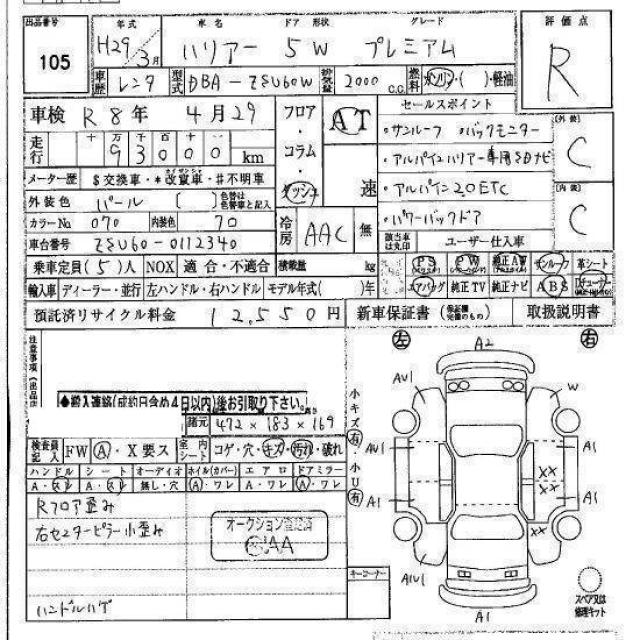 出品番号 年式 車名 ドア 形状 グレード 評価点
105 H29年 3月 ハリアー 5W プレミアム R
車歴 レンタ 型式 DBA-ZSU60W 排気量 2000 c.c. 燃料 ガソリン・( )軽油
車検 R8年 4月29 フロア・コラム・ダッシュ AT 速
セールスポイント
走行 十 万 千 百 十 一
93000 km
・サンルーフ ・バックモニター
・アルパインハリアー専用SDナビ
・アルパイン2.0ETC
・パワーバックドア
[外装] C
[内装] C
メーター歴 $交換車・*改竄車・#不明車
外装色 パール ( ) 色替は色替車名と記入
カラーNo 070 内装色 70
冷房 AAC 無
車台番号 ZSU60-0112340
該当車は丸印 ユーザー仕入車
乗車定員(5)人 NOX 適合・不適合 積載量 kg
PS PW 純正AW サンルーフ 革シート
輸入車 ディーラー・並行 左ハンドル・右ハンドル モデル年式( )年
エアバッグ 純正TV 純正ナビ ABS
預託済リサイクル料金 12,550円
新車保証書 (保証継続可能のもの) 取扱説明書
注意事項(出品店
●搬入連絡(成約日含め4日以内)後お引取り下さい。
諸元 472×183×169
検査員記入 FW A・X要ス 室内シート コゲ・穴・キズ・汚れ・破れ
ハンドル シート オーディオ ホイル(カバー) エアロ ドアミラー
A・スレ A・スレ 無し・穴 A・ワレ A・ワレ A・ワレ
Rフロア歪み
右センターピラー小歪み
オークション登録済
AA
ハンドルハゲ
キーコーナー
左 右
小キズ有・小U有
A2
AU1 W
AU1 A1
XX
A1 XX A1
XX
AU1
A1
スペア又は修理キット